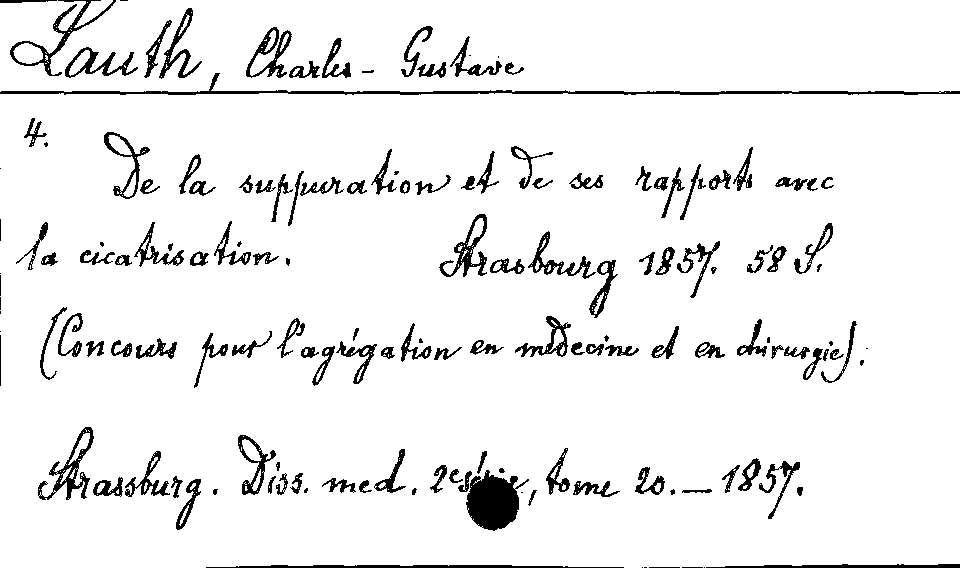 Lauth, Charles-Gustave
4.
De la suppuration et de ses rapports avec
la cicatrisation. Strasbourg 1857. 58 S.
(Concours pour l'agrégation en médecine et en chirurgie).
Strassburg. Diss. med. 2e série, tome 20. — 1857.